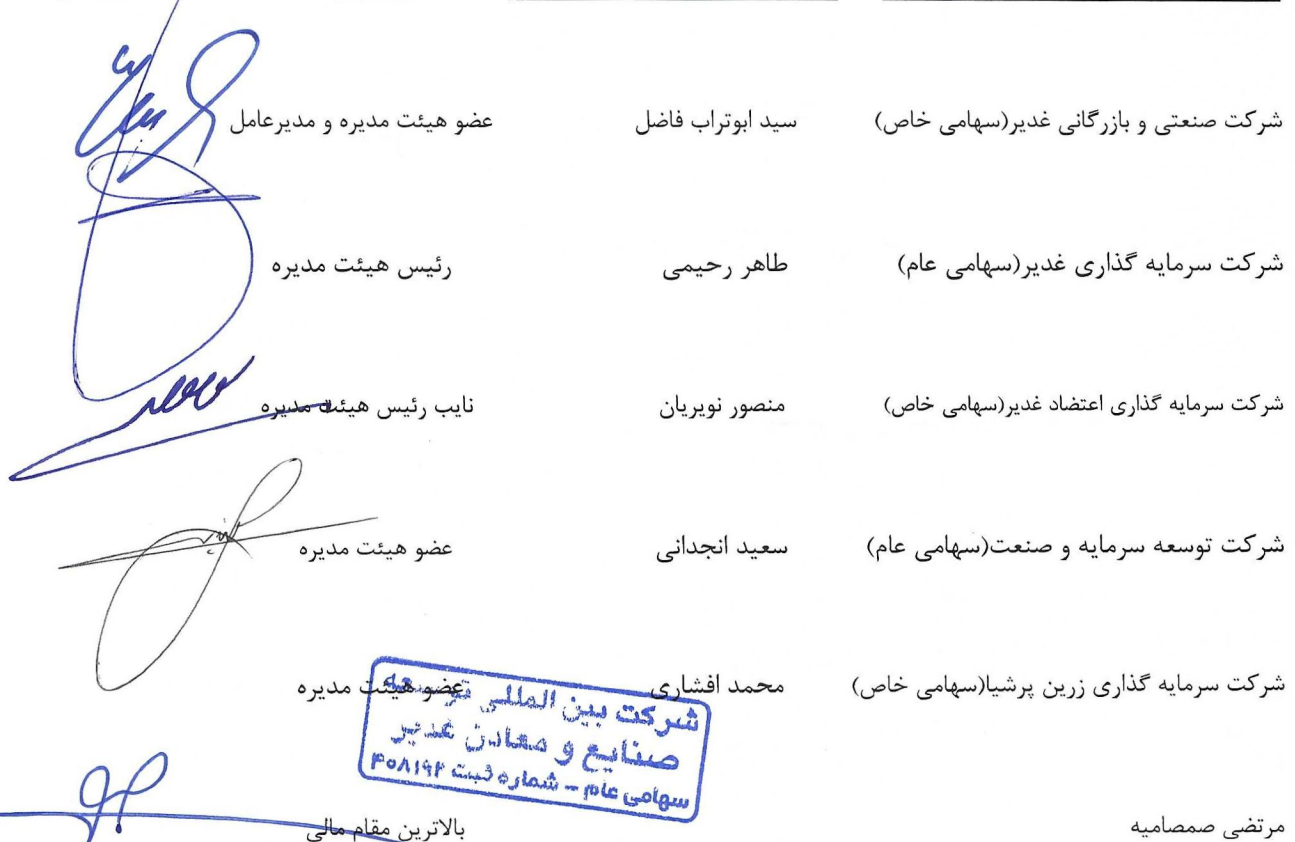 شرکت صنعتی و بازرگانی غدیر(سهامی خاص) سید ابوتراب فاضل عضو هیئت مدیره و مدیرعامل
شرکت سرمایه گذاری غدیر(سهامی عام) طاهر رحیمی رئیس هیئت مدیره
شرکت سرمایه گذاری اعتضاد غدیر(سهامی خاص) منصور نویریان نایب رئیس هیئت مدیره
شرکت توسعه سرمایه و صنعت(سهامی عام) سعید انجدانی عضو هیئت مدیره
شرکت سرمایه گذاری زرین پرشیا(سهامی خاص) محمد افشاری عضو هیئت مدیره
شرکت بین المللی توسعه
صنایع و معادن غدیر
سهامی عام - شماره ثبت ۴۰۸۱۹۲
مرتضی صمصامیه بالاترین مقام مالی